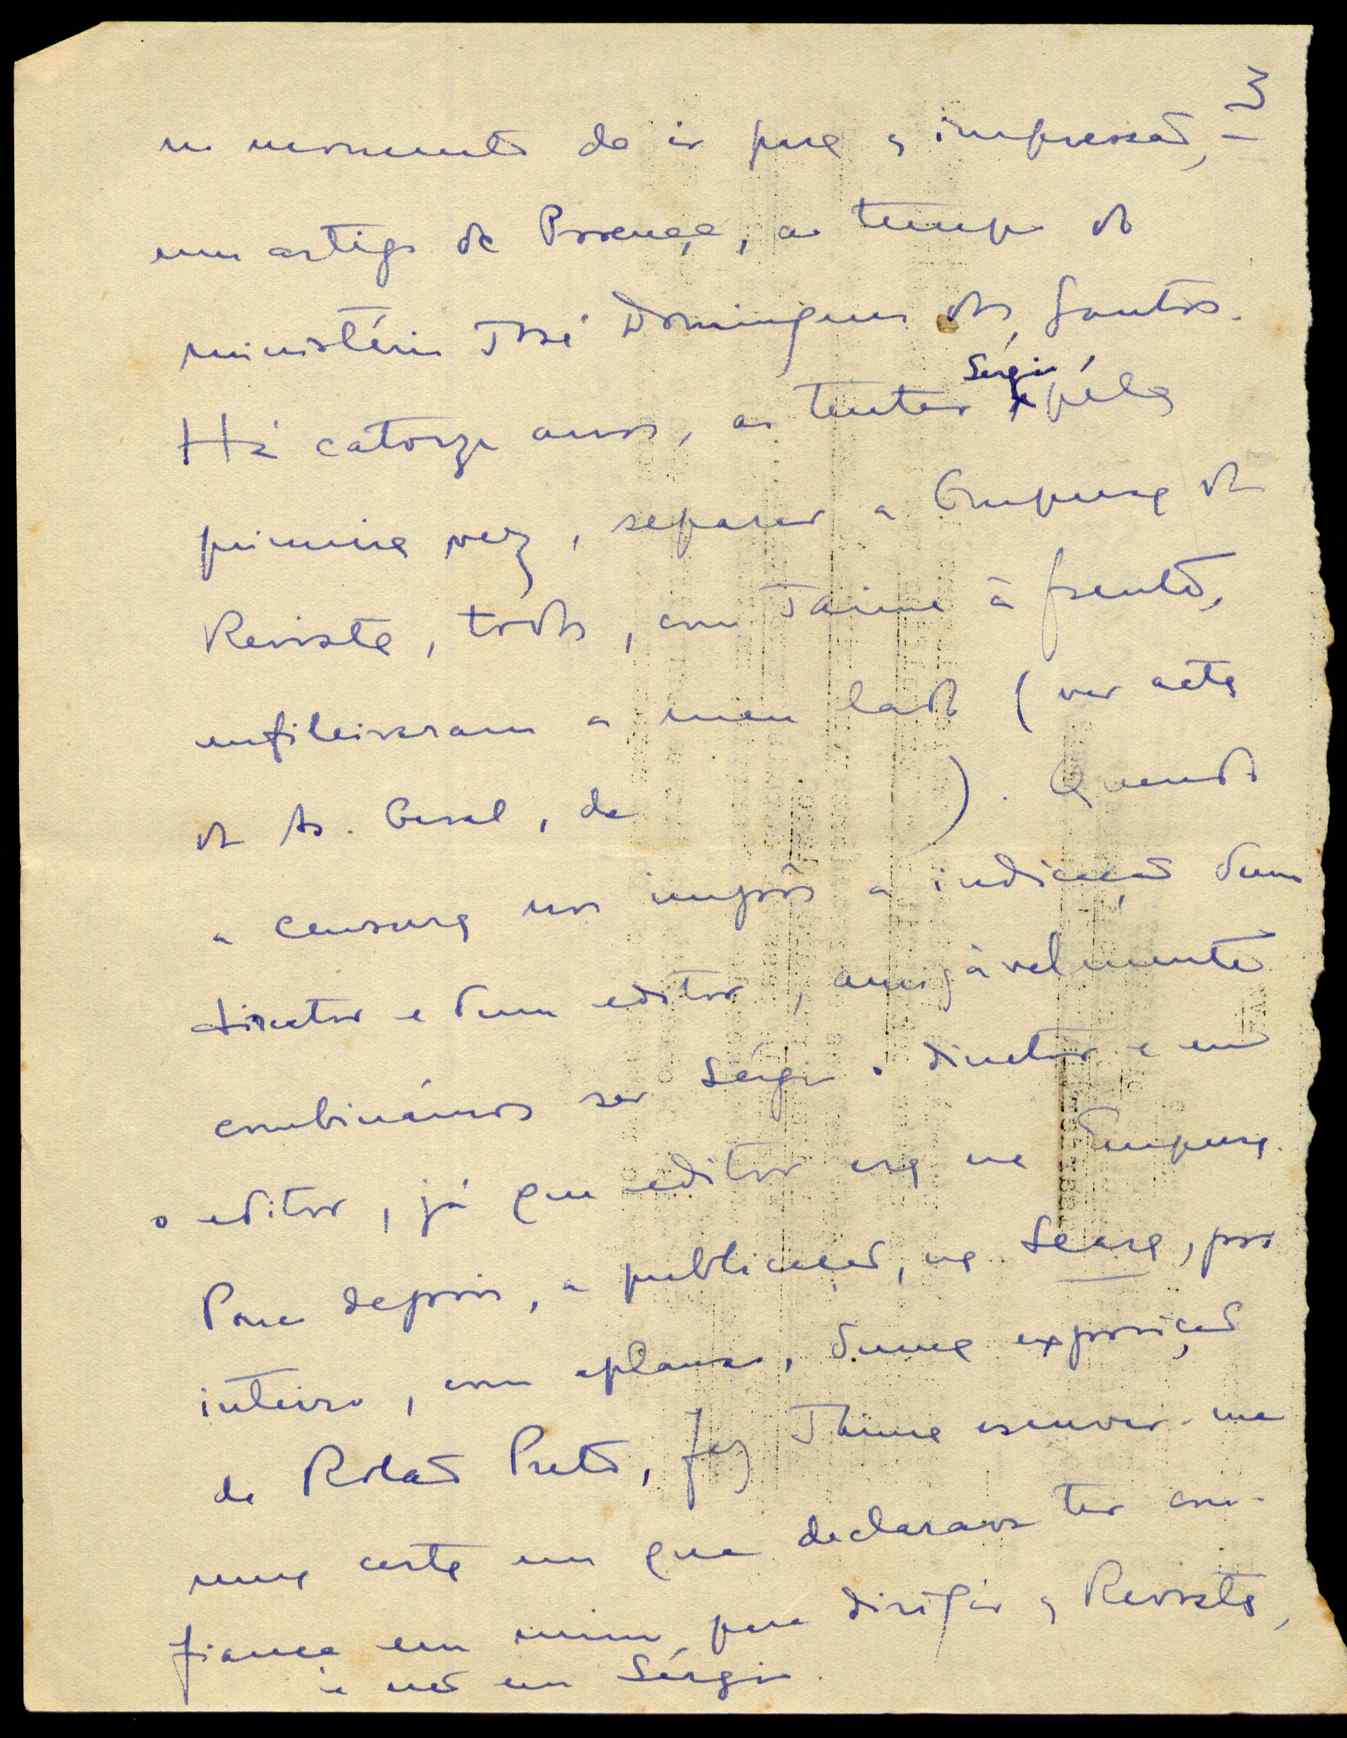 3
no momento de ir para a impressão,
um artigo de Proença, ao tempo do
ministério José Domingues dos Santos.
Há catorze anos, ao tentar Sérgio, pela
primeira vez, separar a Empresa da
Revista, todos, com Jaime à frente,
enfileiraram a meu lado (ver acta
da As. Geral, de ). Quando
a censura nos impôs a indicação dum
director e dum editor, amigàvelmente
combinámos ser Sérgio o director e eu
o editor, já que editor era na Empresa.
Pouco depois, a publicação, na Seara, por
inteiro, com aplauso, duma exposição
de Rolão Preto, fez Jaime escrever-me
uma carta em que declarava ter con-
fiança em mim, para dirigir a Revista,
e não em Sérgio.